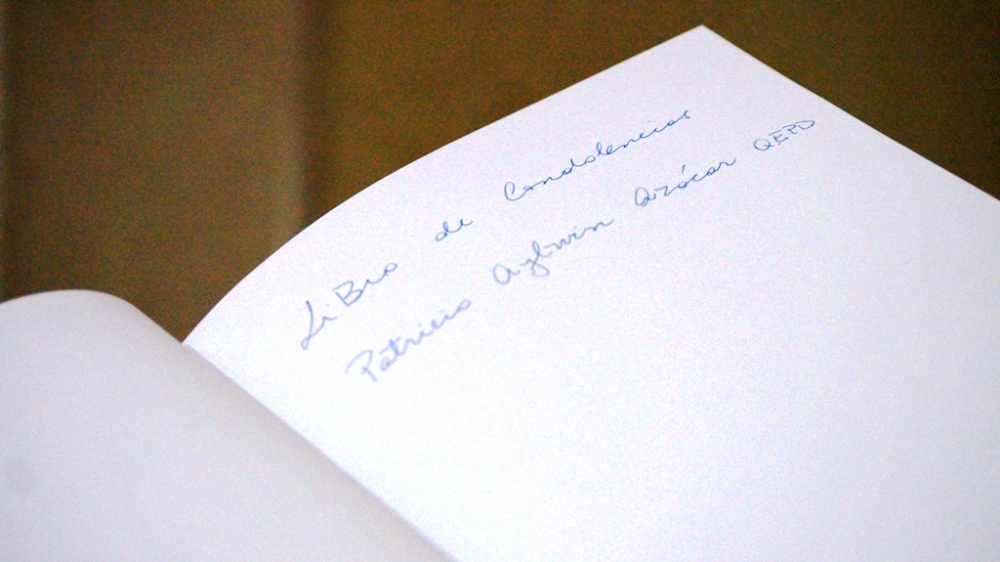 LiBro de Condolencias
Patricio Aylwin Azócar QEPD